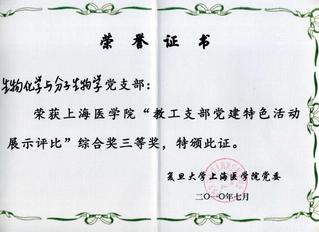 荣誉证书
生物化学与分子生物学党支部：
荣获上海医学院“教工支部党建特色活动
展示评比”综合奖三等奖，特颁此证。
复旦大学上海医学院党委
二〇一〇年七月